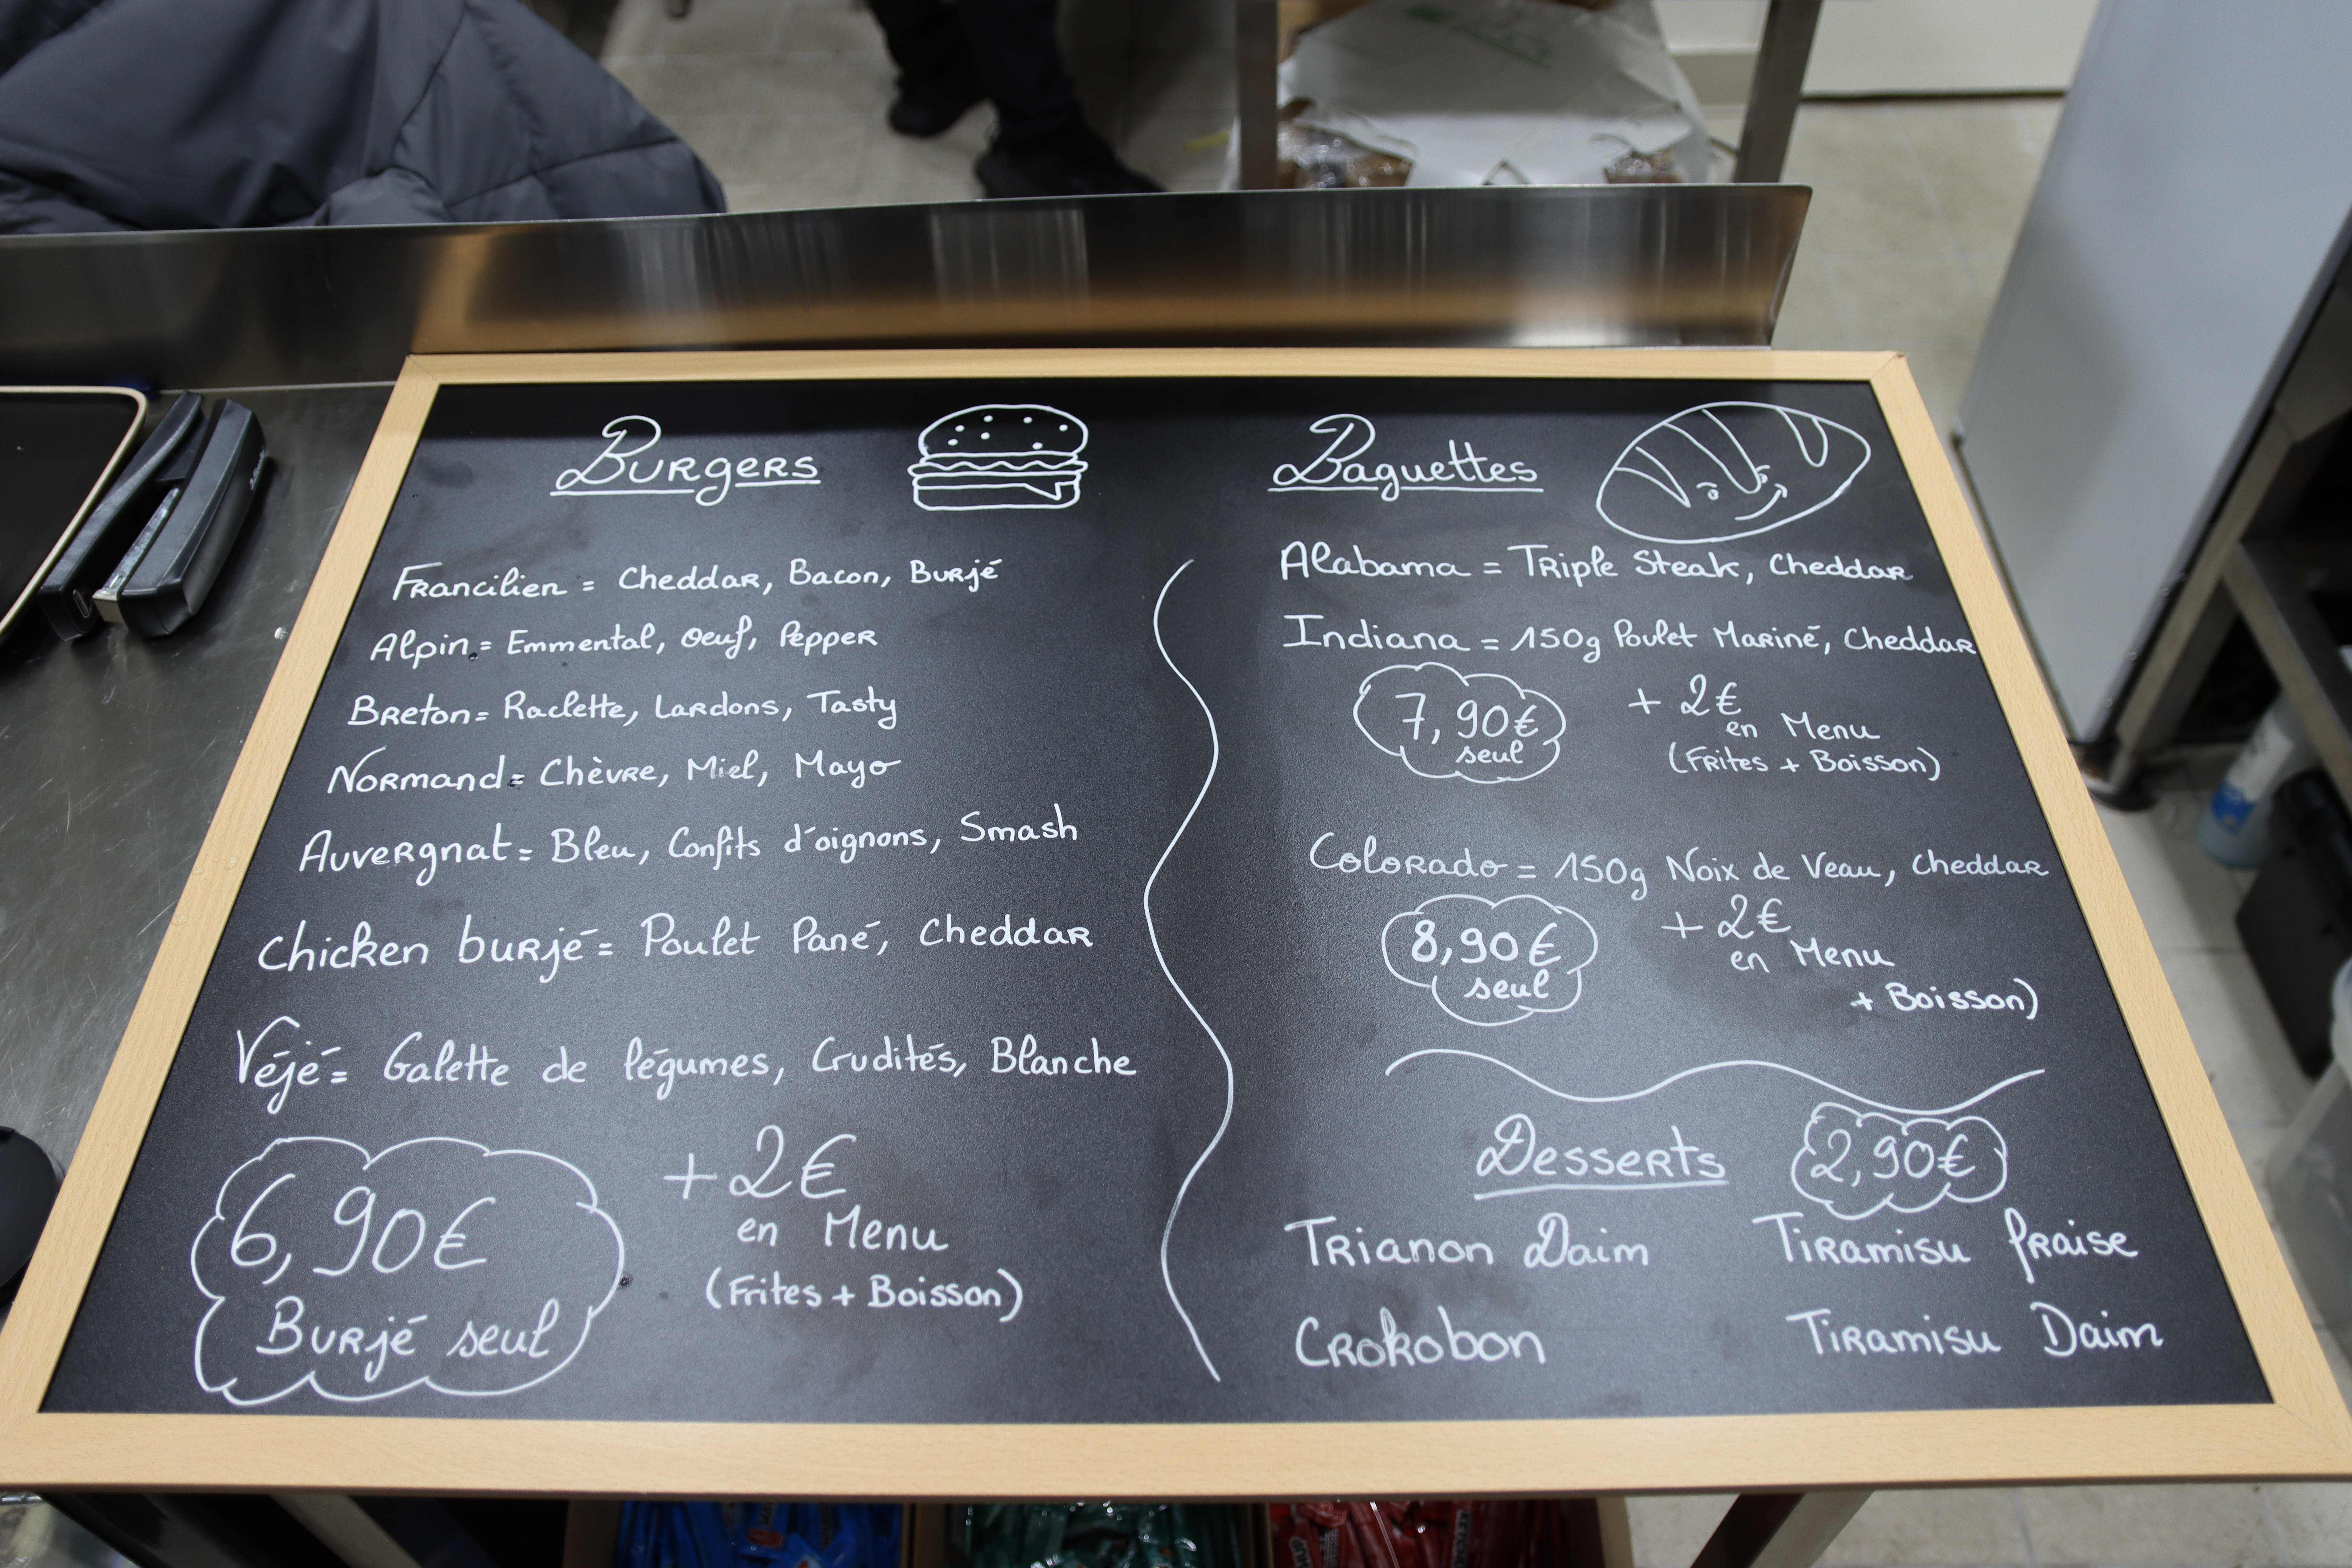 Burgers
Francilien = Cheddar, Bacon, Burjé
Alpin = Emmental, Oeuf, Pepper
Breton = Raclette, Lardons, Tasty
Normand = Chèvre, Miel, Mayo
Auvergnat = Bleu, Confits d'oignons, Smash
Chicken burjé = Poulet Pané, Cheddar
Véjé = Galette de légumes, Crudités, Blanche
6,90€
Burjé seul
+2€
en Menu
(Frites + Boisson)
Baguettes
Alabama = Triple Steak, Cheddar
Indiana = 150g Poulet Mariné, Cheddar
7,90€
seul
+ 2€
en Menu
(Frites + Boisson)
Colorado = 150g Noix de Veau, Cheddar
8,90€
seul
+2€
en Menu
+ Boisson)
Desserts
2,90€
Trianon Daim
Tiramisu fraise
Crokobon
Tiramisu Daim